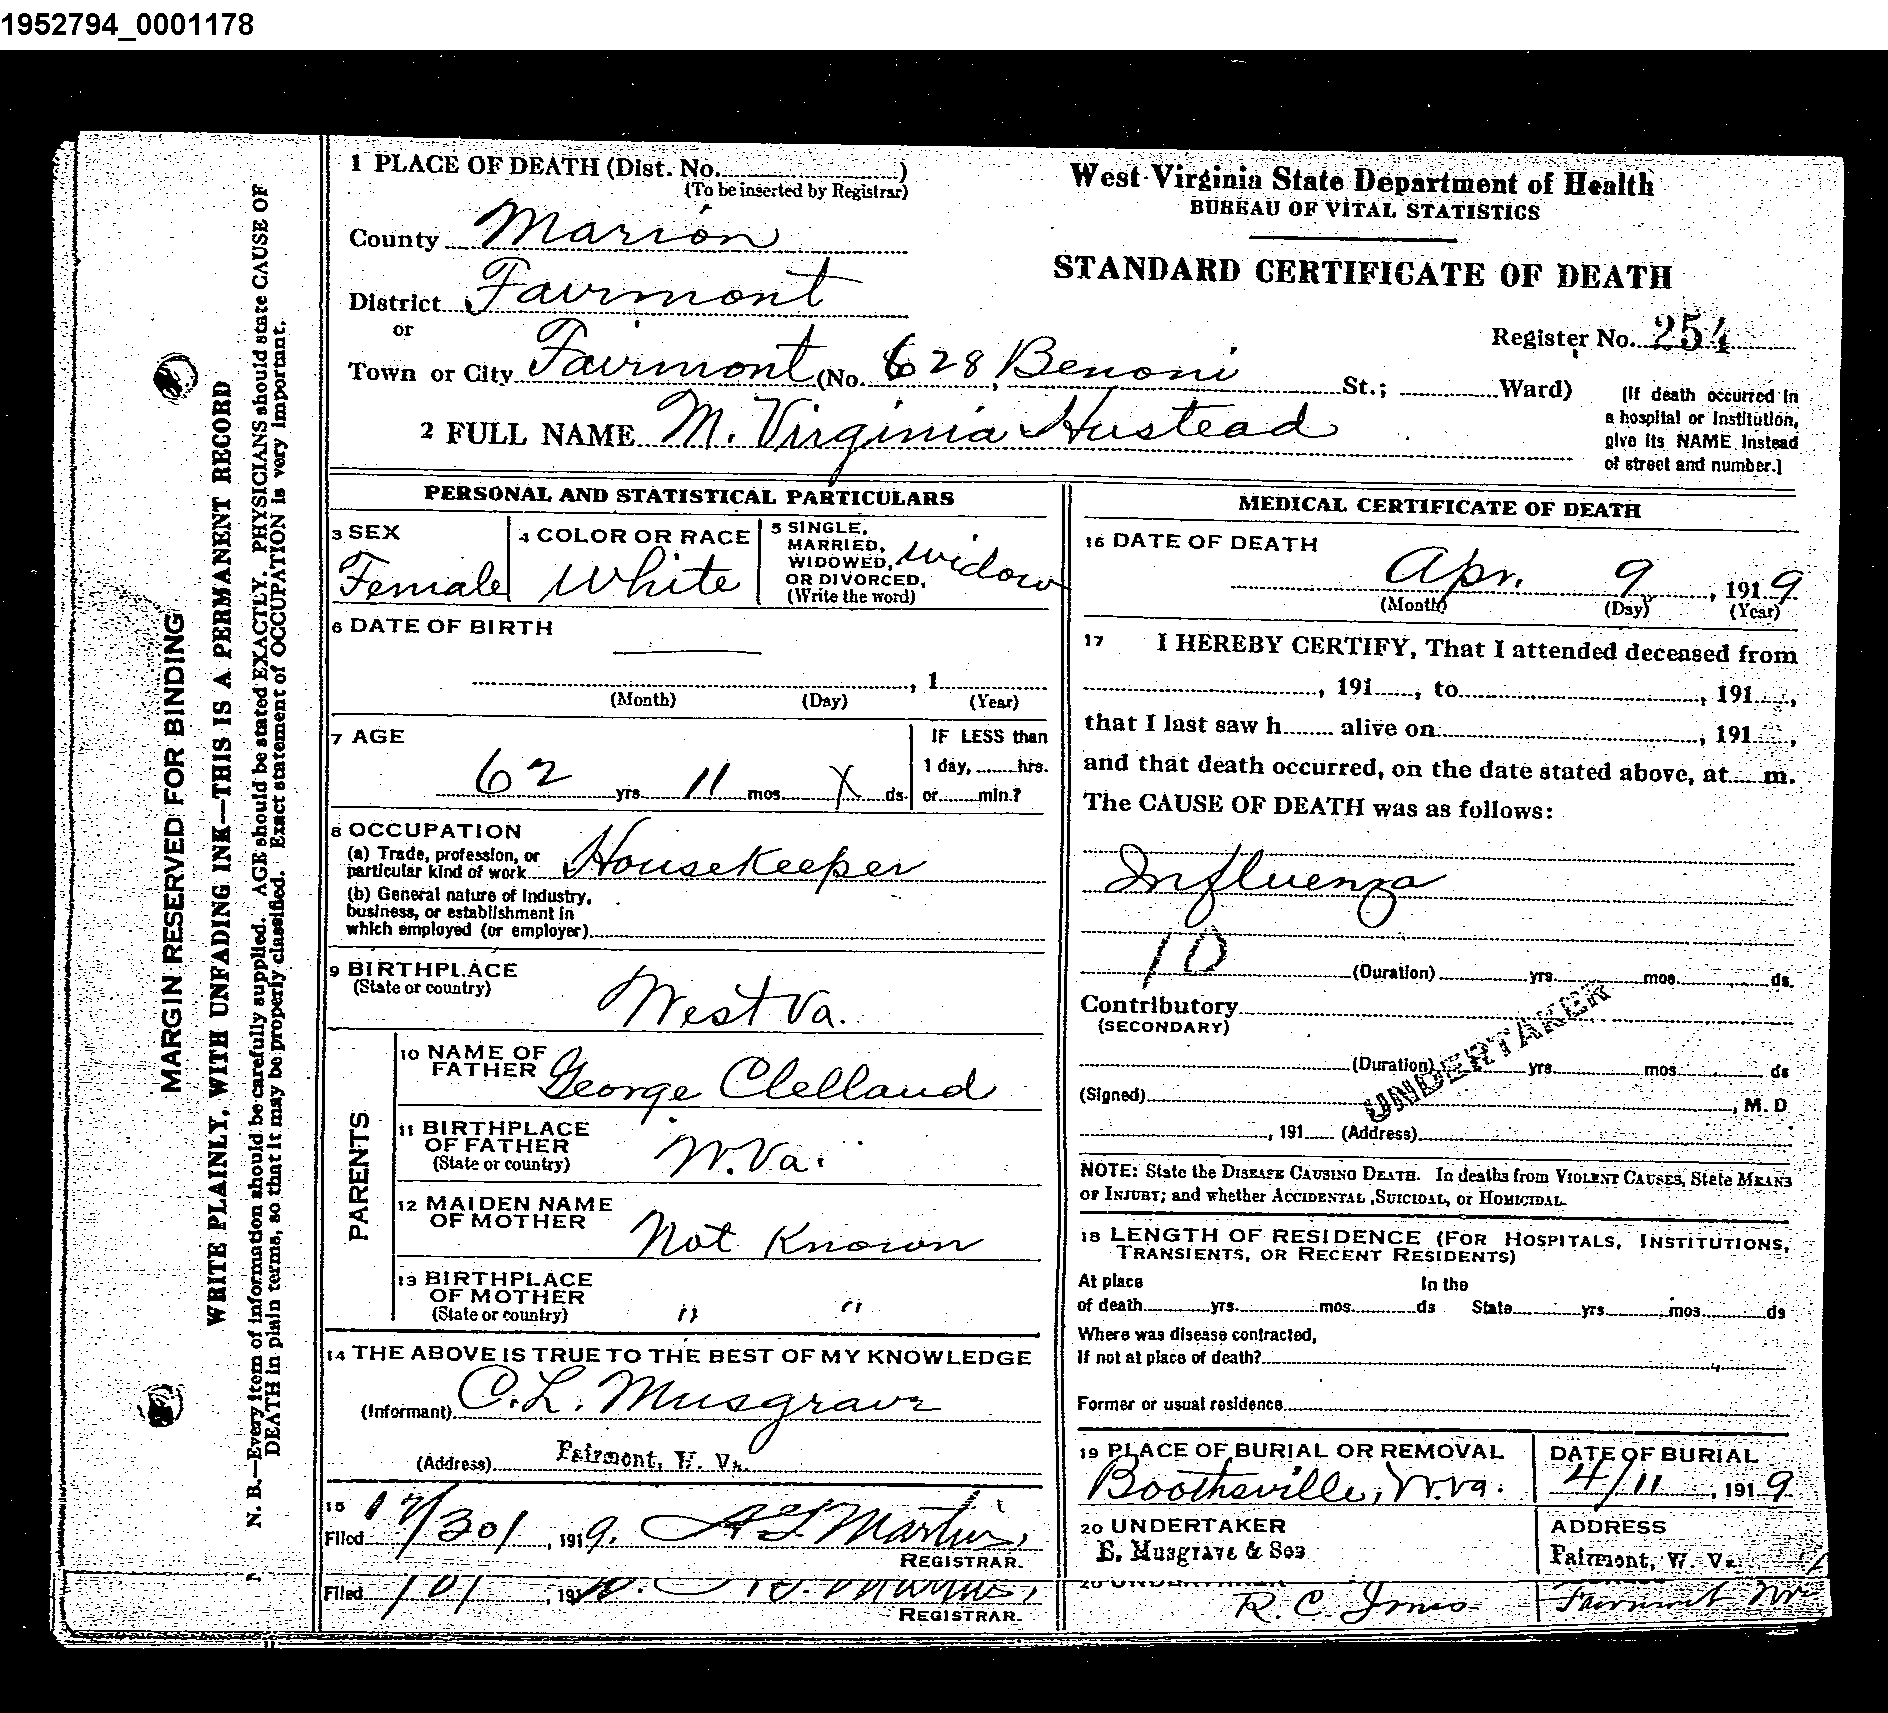 1952794_0001178
1 PLACE OF DEATH (Dist. No. )
(To be inserted by Registrar)
County Marion
District Fairmont
or
Town or City Fairmont (No. 628, Benoni St.; Ward)
2 FULL NAME M. Virginia Hustead
West Virginia State Department of Health
BUREAU OF VITAL STATISTICS
STANDARD CERTIFICATE OF DEATH
Register No. 254
[If death occurred in
a hospital or institution,
give its NAME instead
of street and number.]
MARGIN RESERVED FOR BINDING
WRITE PLAINLY, WITH UNFADING INK—THIS IS A PERMANENT RECORD
N. B.—Every item of information should be carefully supplied. AGE should be stated EXACTLY. PHYSICIANS should state CAUSE OF
DEATH in plain terms, so that it may be properly classified. Exact statement of OCCUPATION is very important.
PERSONAL AND STATISTICAL PARTICULARS
3 SEX
Female
4 COLOR OR RACE
White
5 SINGLE,
MARRIED,
WIDOWED,
OR DIVORCED,
(Write the word)
Widow
6 DATE OF BIRTH
, 1
(Month) (Day) (Year)
7 AGE
62 yrs. 11 mos. X ds.
IF LESS than
1 day, hrs.
or min.?
8 OCCUPATION
(a) Trade, profession, or
particular kind of work Housekeeper
(b) General nature of industry,
business, or establishment in
which employed (or employer)
9 BIRTHPLACE
(State or country)
West Va.
PARENTS
10 NAME OF
FATHER George Clelland
11 BIRTHPLACE
OF FATHER
(State or country)
W. Va.
12 MAIDEN NAME
OF MOTHER
Not Known
13 BIRTHPLACE
OF MOTHER
(State or country) " "
14 THE ABOVE IS TRUE TO THE BEST OF MY KNOWLEDGE
(Informant) C. L. Musgrave
(Address) Fairmont, W. Va.
15
Filed 12/30/, 1919. Martin,
REGISTRAR.
Filed 191
REGISTRAR.
MEDICAL CERTIFICATE OF DEATH
16 DATE OF DEATH
Apr. 9, 1919
(Month) (Day) (Year)
17 I HEREBY CERTIFY, That I attended deceased from
, 191 , to , 191 ,
that I last saw h alive on , 191 ,
and that death occurred, on the date stated above, at m.
The CAUSE OF DEATH was as follows:
Influenza
10 (Duration) yrs. mos. ds.
Contributory
(SECONDARY)
(Duration) yrs. mos. ds
(Signed) , M. D
, 191 (Address)
UNDERTAKER
NOTE: State the DISEASE CAUSING DEATH. In deaths from VIOLENT CAUSES, State MEANS
OF INJURY; and whether ACCIDENTAL, SUICIDAL, or HOMICIDAL.
18 LENGTH OF RESIDENCE (FOR HOSPITALS, INSTITUTIONS,
TRANSIENTS, OR RECENT RESIDENTS)
At place In the
of death yrs. mos. ds State yrs. mos. ds
Where was disease contracted,
If not at place of death?
Former or usual residence
19 PLACE OF BURIAL OR REMOVAL
Boothsville, W. Va.
DATE OF BURIAL
4/11, 1919
20 UNDERTAKER
E. Musgrave & Son
ADDRESS
Fairmont, W. Va.
20 UNDERTAKER
R. C. Jones
Fairmont